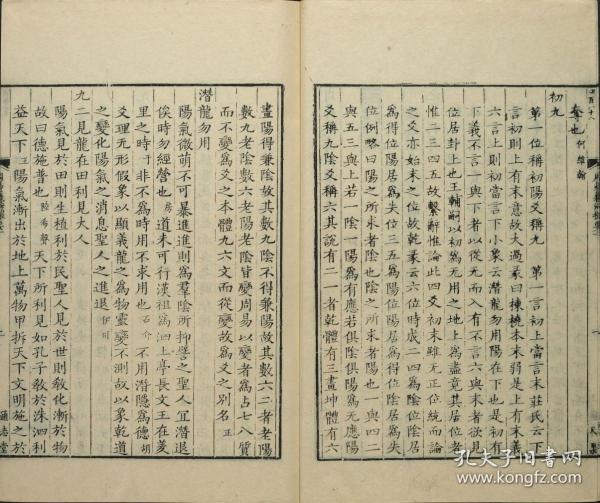 奉也何維翰
初九
第一位稱初陽爻稱九 第一言初上當言末莊氏云下
言初則上有末意故大過彖曰棟橈本末弱是上有末義
六言上則初當言下小象云潛龍勿用陽在下也是初有
下義不言一與下者以從无而入有不言六與末者欲見
位居卦上也王輔嗣以初爲无用之地上爲盡竟其居者
惟二三四五故繫辭惟論此四爻初末雖无正位統而論
之爻亦始末之位故乾彖云六位時成二四爲陰位陰居
爲得位陽居爲失位三五爲陽位陽居爲得位陰居爲失
位例略曰陽之所求者陰也陰之所求者陽也一與四二
與五三與上若一陰一陽爲有應若俱陰俱陽爲无應陽
爻稱九陰爻稱六其說有二一者乾體有三畫坤體有六
畫陽得兼陰故其數九陰不得兼陽故其數六二者老陽
數九老陰數六老陽老陰皆變周易以變者爲占七八質
而不變爲爻之本體九六文而從變故爲爻之別名正
潛龍勿用
陽氣微萌不可暴進進則爲羣陰所抑學之聖人宜潛退
俟時勿經營也房 道未可行漢祖爲泗上亭長文王在羑
里之時于非不爲時用不求用也石介 不用潛隱爲德胡
爻理无形假象以顯義龍之爲物靈變不測故以象乾道
之變化陽氣之消息聖人之進退伊川
九二見龍在田利見大人
陽氣見於田則生植利於民聖人見於世則敎化漸於物
故曰德施普也陸希聲 天下所利見如孔子敎於洙泗利
益天下 陽氣漸出於地上萬物甲拆天下文明施之於
通志堂
孔夫子旧书网